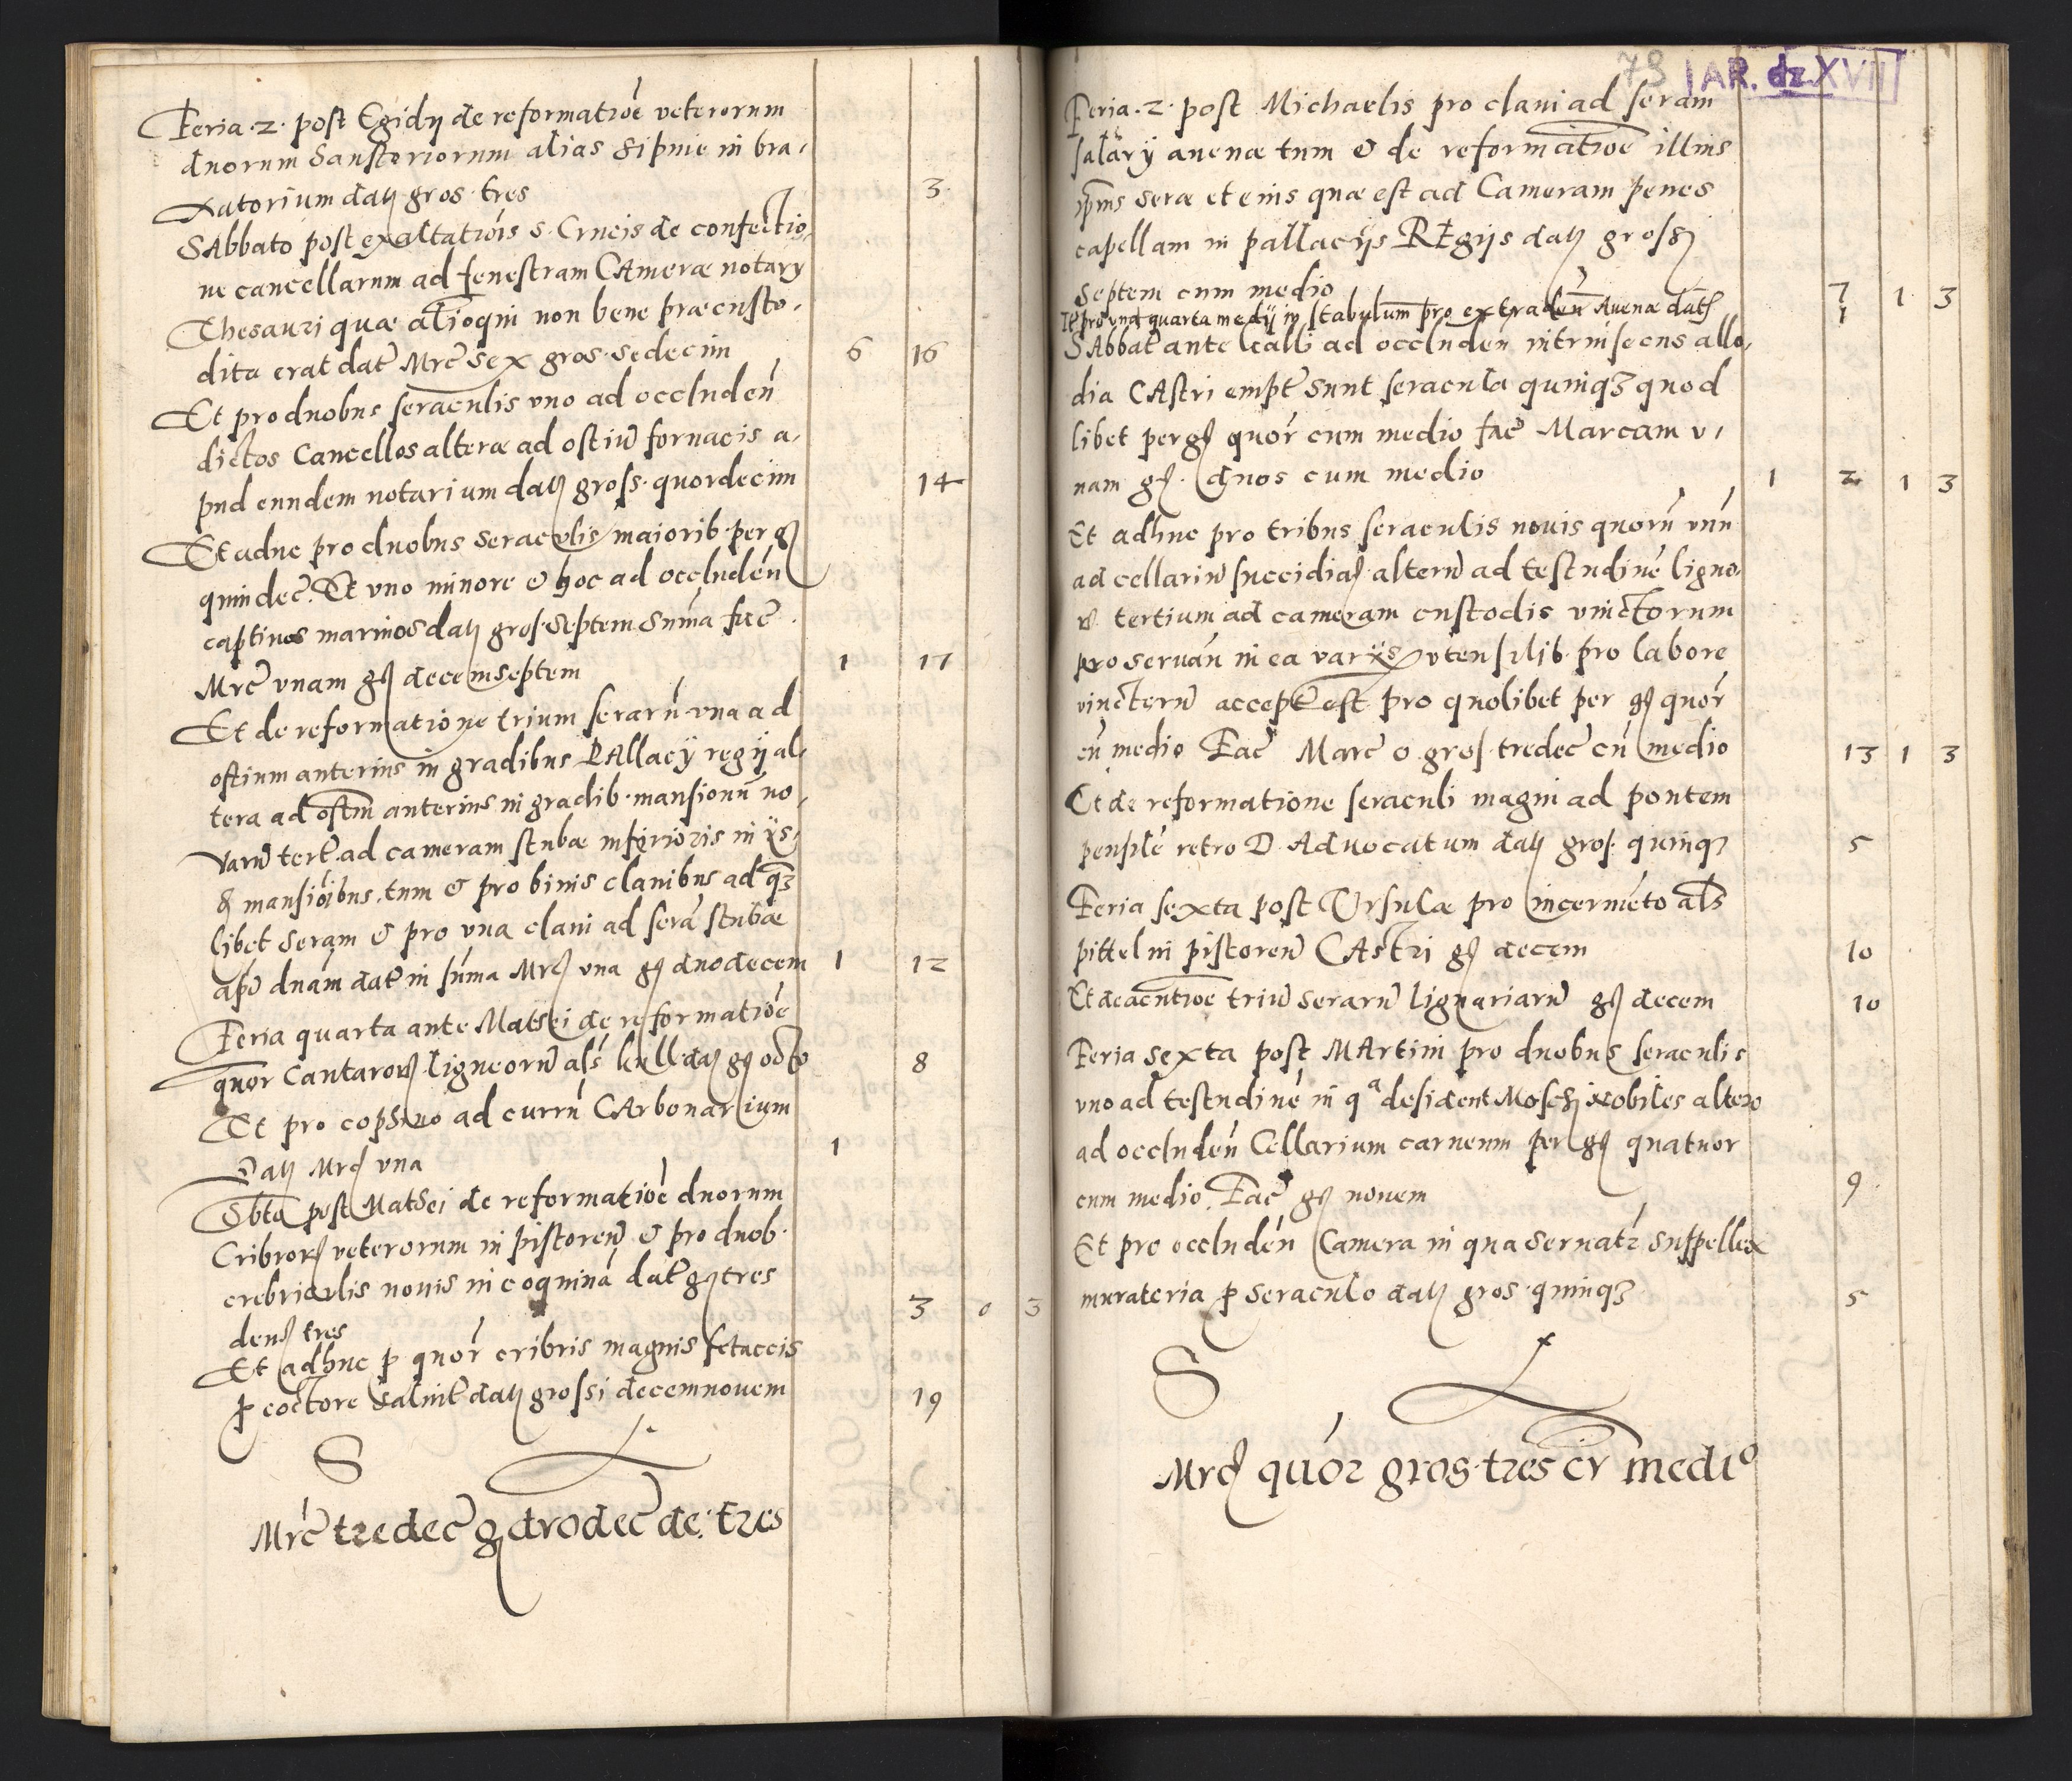 Feria .2. post Egidij de reformatiõe veterorum
duorum Saustoriorum alias Sipnie in bra,
xatorium datȝ gros. tres 3.
SAbbato post exaltatiõis S. Crucis de confectio,
ne cancellarum ad fenestram CAmeræ notary
Thesauri quæ alioqui non bene præcusto,
dita erat dat Mrc sex gros. sedecim 6 16
Et pro duobus seraculis vno ad occluden
dictos Cancellos alteræ ad ostiu fornacis a,
pud eundem notarium datȝ gross. quordecim 14
Et aduc pro duobus seraculis maiorib. per gȝ
quindec. Et vno minore & hoc ad occluden
captiuos marinos datȝ gros. septem Suma fac.
Mrc vnam gȝ decemseptem 1 17
Et de reformatione trium seraru vna ad
ostium anterius in gradibus PAllacij regij al,
tera ad ostm anterius in gradib. mansionu no,
varu tert ad cameram stubæ inferioris in ijs,
dȝ mansioibus, tum & pro binis clauibus ad qȝ
libet seram & pro vna claui ad sera stubæ
apd dnam dat in suma Mrȝ vna gȝ duodecem 1 12
Feria quarta ante Mathei de reformatiõe
quor Cantarorȝ ligneoru als kull datȝ gȝ octo 8
Et pro cophino ad curru CArbonarium
Datȝ Mrȝ vna 1
Sbto post Mathei de reformatiõe duorum
Cribrorȝ veterorum in pistoreu & pro duob.
crebriculis nouis in coquina dat gȝ tres
denȝ tres 3 0 3
Et adhuc p quor cribris magnis setaceis
p coctore Saluit datȝ grossi decemnouem 19
S
Mrc tredec gȝ dvodec de: tres
73 AR. dz. XVII
Feria .2. post Michaelis pro claui ad seram
salarij auenæ tum & de reformatioe illius
ipms seræ et eius quæ est ad Cameram penes
capellam in pallacijs REgijs datȝ grossȝ
septem cum medio 7 1 3
It pro vna quarta medij in stabulum pro extraden Auenæ datȝ 1
SAbbat ante Galli ad occluden intrinsecus allo,
dia CAstri empt sunt seracula quinqȝ quod
libet per gȝ quor cum medio fac Marcam v,
nam gȝ. duos cum medio 1 2 1 3
Et adhuc pro tribus seraculis nouis quoru vnu
ad cellariu succidiaȝ alteru ad testudine ligno,
rȝ tertium ad cameram custodis vinctorum
pro seruan in ea varijs vtensilib. pro labore
vinctoru accept est pro quolibet per gȝ quor
cu medio Fac Marc 0 gros. tredec cu medio 13 1 3
Et de reformatione seraculi magni ad pontem
pensile retro D. Aduocatum datȝ gros. quinqȝ 5
Feria sexta post Vrsulæ pro incermeto als
pittel in pistoreu CAstri gȝ decem 10
Et de acutioe triu seraru lignariaru gȝ decem 10
Feria sexta post MArtini pro duobus seraculis
vno ad testudine in qa desident Moschi nobiles altero
ad occluden Cellarium carneum per gȝ quatuor
cum medio. Fac gȝ nouem 9.
Et pro occluden Camera in qua seruatr suppellex
murateria p seraculo datȝ gros. quinqȝ 5
S
Mrȝ quor gros. tres cv medio